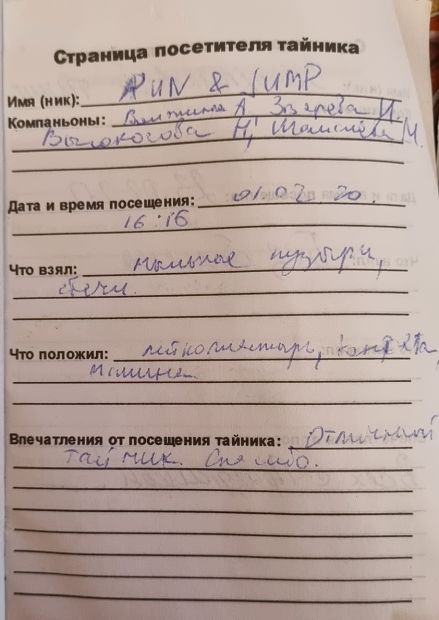 Страница посетителя тайника
Имя (ник): RUN & JUMP
Компаньоны: А. Зверева И.
Н,
Дата и время посещения: 01.02.20.
16:16
Что взял: мыльные пузыри,
свечи.
Что положил: лейкопластырь, конфета,
машина.
Впечатления от посещения тайника: Отличный
тайник. Спасибо.